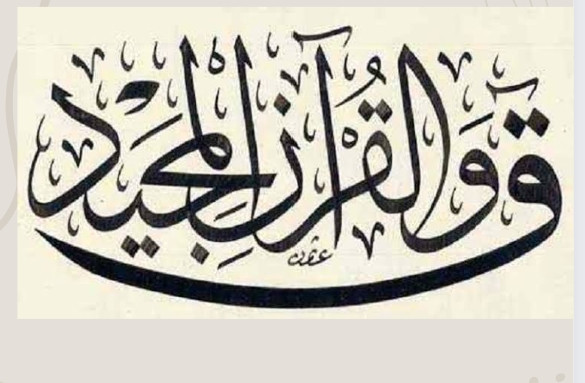 قٓ وَالْقُرْآنِ الْمَجِيدِ
عثمان